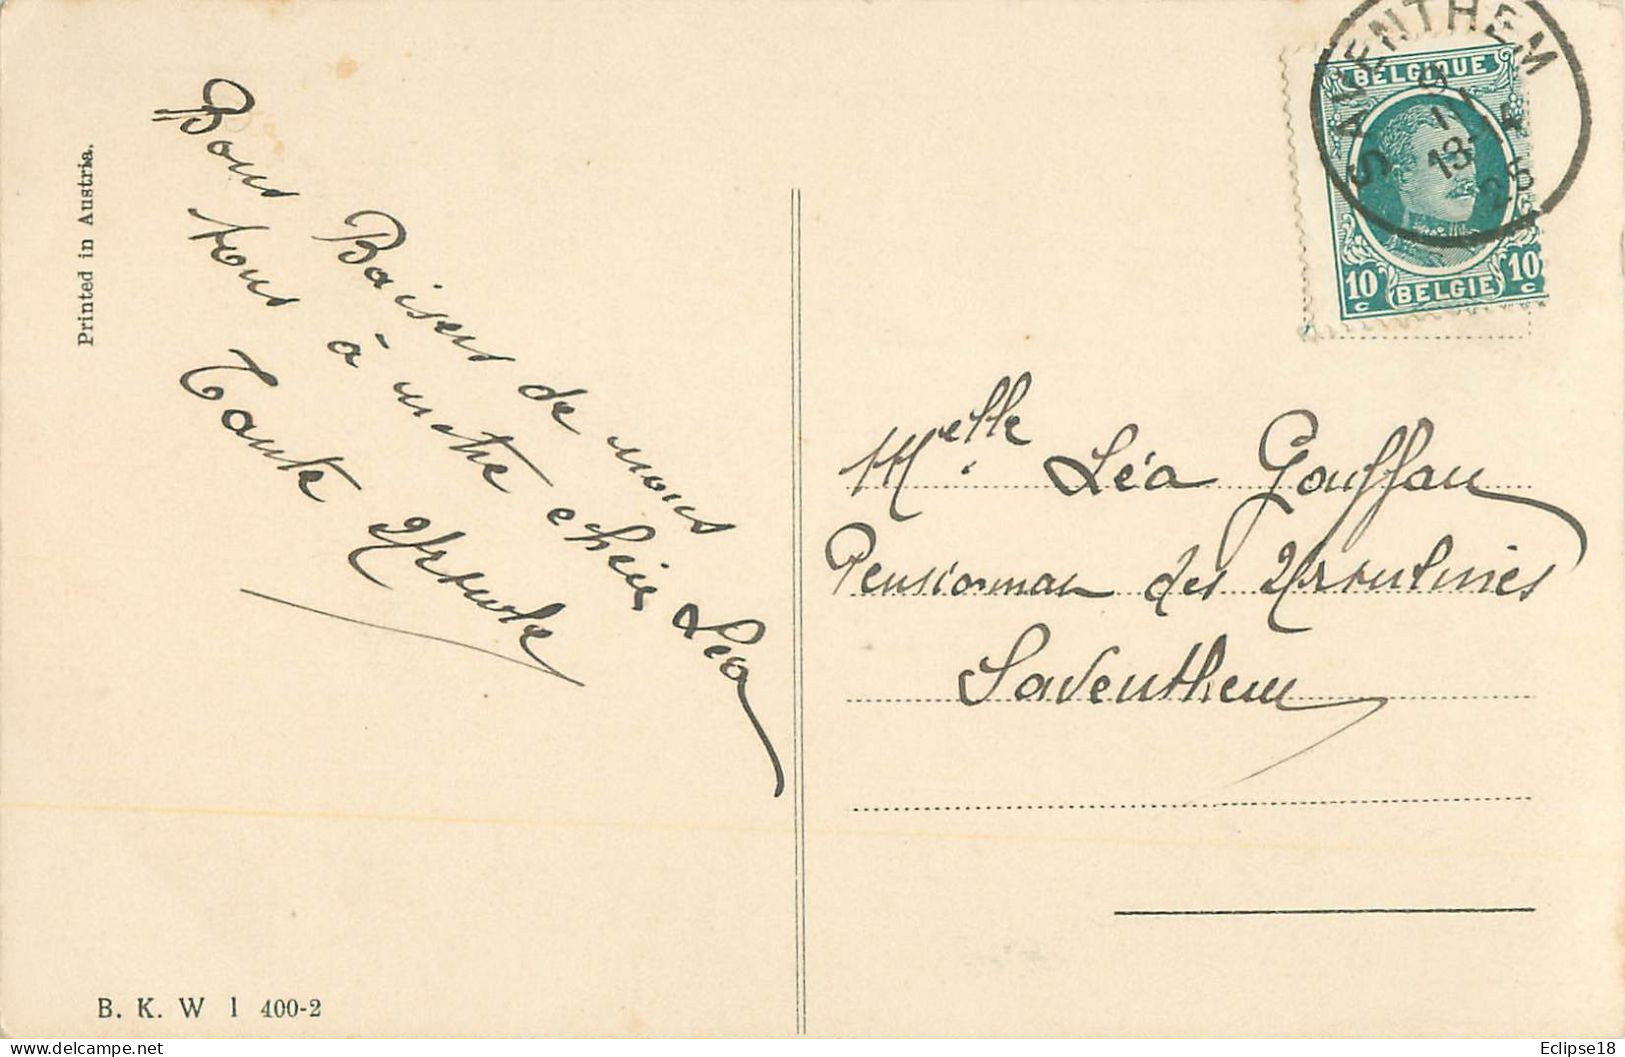 Printed in Austria.
Bons Baisers de nous
tous à notre chère Léa
Tante Ursule
B. K. W I 400-2
SAVENTHEM
13-
25
BELGIQUE
10 c
BELGIE
10 c
Melle Léa Gouffau
Pensionnat des Ursulines
Saventhem
Eclipse18